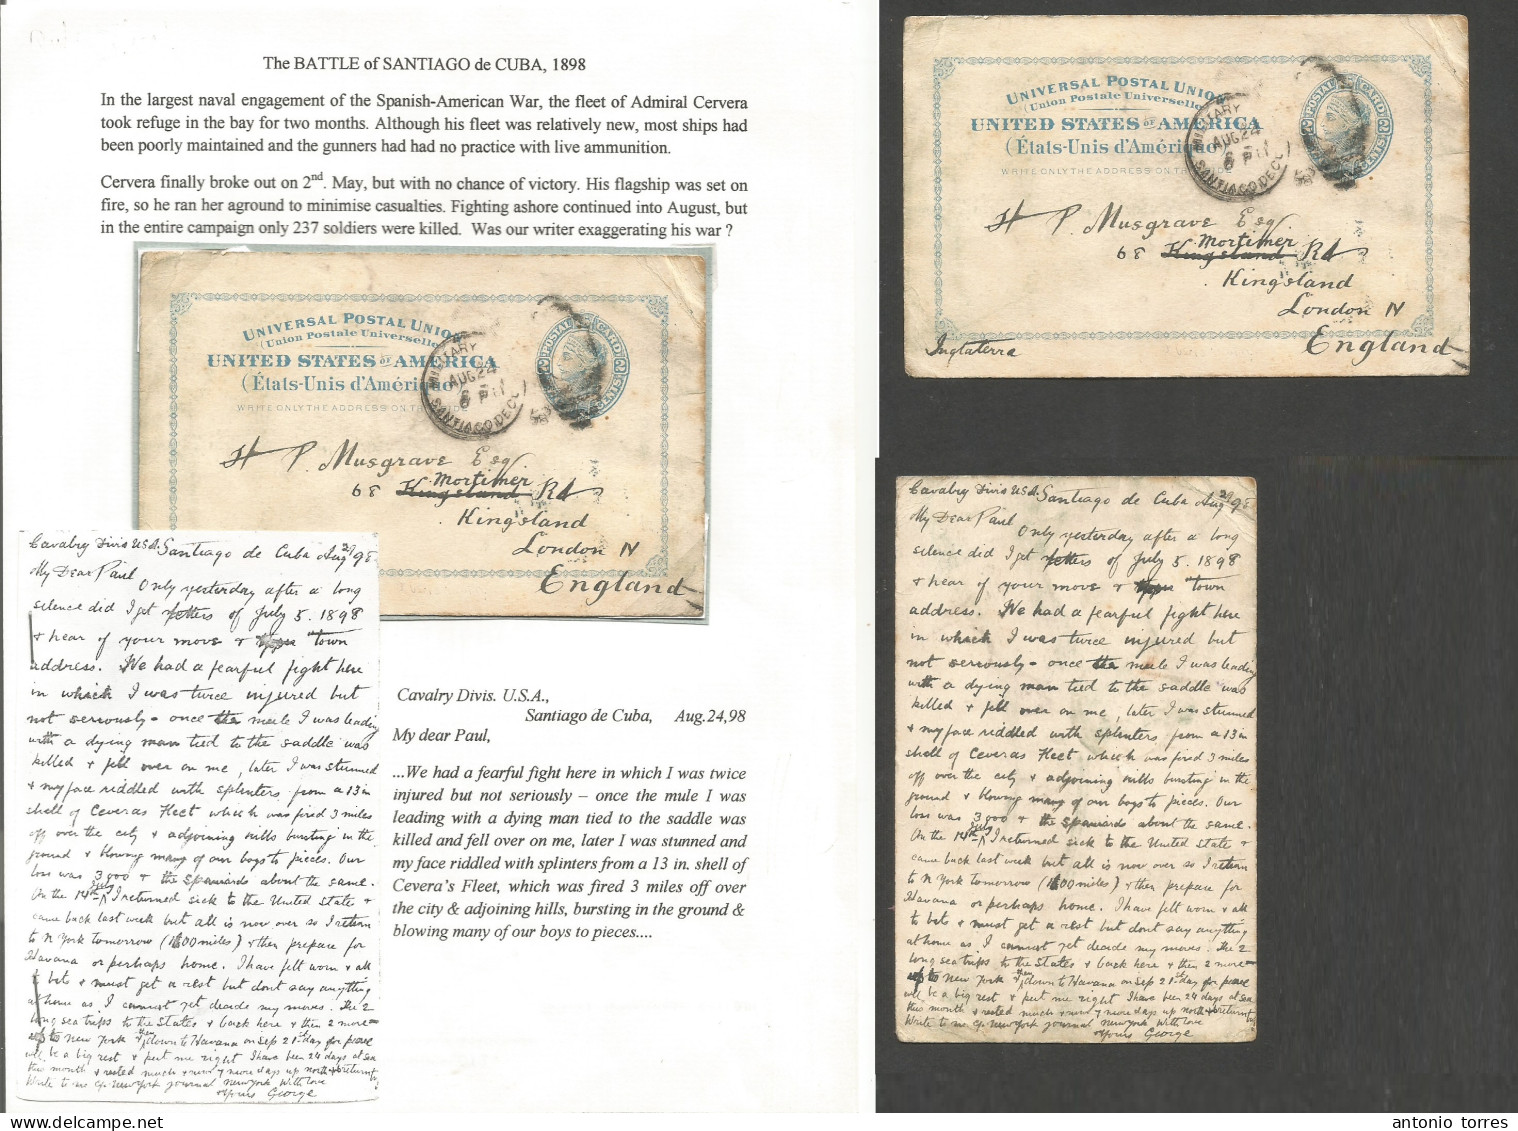 The BATTLE of SANTIAGO de CUBA, 1898
In the largest naval engagement of the Spanish-American War, the fleet of Admiral Cervera
took refuge in the bay for two months. Although his fleet was relatively new, most ships had
been poorly maintained and the gunners had had no practice with live ammunition.
Cervera finally broke out on 2nd. May, but with no chance of victory. His flagship was set on
fire, so he ran her aground to minimise casualties. Fighting ashore continued into August, but
in the entire campaign only 237 soldiers were killed. Was our writer exaggerating his war ?
UNIVERSAL POSTAL UNION
(Union Postale Universelle)
UNITED STATES OF AMERICA
(États-Unis d'Amérique)
WRITE ONLY THE ADDRESS ON THIS SIDE
POSTAL CARD
2 CENTS 2
MILITARY
AUG 24
6 PM
SANTIAGO DE CU
H P. Musgrave Esq
Mortimer
68 Kingsland Rd
Kingsland
London N
England
Cavalry Divis USA. Santiago de Cuba Aug 24 98
My Dear Paul
Only yesterday after a long
silence did I get letters of July 5. 1898
& hear of your move & town
address. We had a fearful fight here
in which I was twice injured but
not seriously - once the mule I was leading
with a dying man tied to the saddle was
killed & fell over on me, later I was stunned
& my face riddled with splinters from a 13 in
shell of Ceveras Fleet which was fired 3 miles
off over the city & adjoining hills bursting in the
ground & blowing many of our boys to pieces. Our
loss was 3000 & the Spaniards about the same.
On the 14th July I returned sick to the United State &
came back last week but all is now over so I return
to N York tomorrow (1600 miles) & then prepare for
Havana or perhaps home. I have felt worn & all
to bits & must get a rest but dont say anything
at home as I cannot yet decide my moves. The 2
long sea trips to the States & back here & then 2 more
up to New York & then down to Havana on Sep 21st day for peace
will be a big rest & put me right I have been 24 days at sea
this month & rested much & now 7 more days up north & return
Write to me c/o New York Journal New York With love
Yours George
Cavalry Divis. U.S.A.,
Santiago de Cuba, Aug.24,98
My dear Paul,
...We had a fearful fight here in which I was twice
injured but not seriously – once the mule I was
leading with a dying man tied to the saddle was
killed and fell over on me, later I was stunned and
my face riddled with splinters from a 13 in. shell of
Cevera's Fleet, which was fired 3 miles off over
the city & adjoining hills, bursting in the ground &
blowing many of our boys to pieces....
UNIVERSAL POSTAL UNION
(Union Postale Universelle)
UNITED STATES OF AMERICA
(États-Unis d'Amérique)
WRITE ONLY THE ADDRESS ON THIS SIDE
POSTAL CARD
2 CENTS 2
MILITARY
AUG 24
6 PM
SANTIAGO DE CU
H P. Musgrave Esq
Mortimer
68 Kingsland Rd
Kingsland
London N
Inglaterra England
Cavalry Divis USA. Santiago de Cuba Aug 24 98
My Dear Paul
Only yesterday after a long
silence did I get letters of July 5. 1898
& hear of your move & town
address. We had a fearful fight here
in which I was twice injured but
not seriously - once the mule I was leading
with a dying man tied to the saddle was
killed & fell over on me, later I was stunned
& my face riddled with splinters from a 13 in
shell of Ceveras Fleet which was fired 3 miles
off over the city & adjoining hills bursting in the
ground & blowing many of our boys to pieces. Our
loss was 3000 & the Spaniards about the same.
On the 14th July I returned sick to the United State &
came back last week but all is now over so I return
to N York tomorrow (1600 miles) & then prepare for
Havana or perhaps home. I have felt worn & all
to bits & must get a rest but dont say anything
at home as I cannot yet decide my moves. The 2
long sea trips to the States & back here & then 2 more
up to New York & then down to Havana on Sep 21st day for peace
will be a big rest & put me right I have been 24 days at sea
this month & rested much & now 7 more days up north & return
Write to me c/o New York Journal New York With love
Yours George
antonio torres